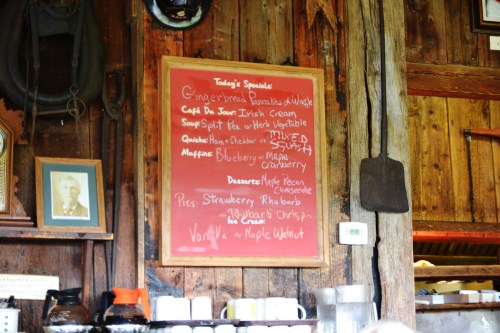 Today's Specials:
Gingerbread Pancakes or Waffle
Café Du Jour: Irish Cream
Soup: Split Pea or Herb Vegetable
Quiche: Ham & Cheddar or MIXED
SQUASH
Muffins: Blueberry or Maple
Cranberry
Desserts: Maple Pecan
Cheesecake
Pies: Strawberry Rhubarb
~ Rhubarb Chrisp ~
Ice Cream:
Vanilla ~ Maple Walnut